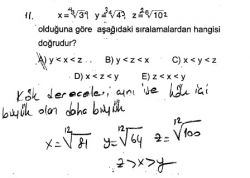 11. x=³√3, y=²√4, z=⁶√10
olduğuna göre aşağıdaki sıralamalardan hangisi
doğrudur?
A) y < x < z B) y < z < x C) x < y < z
D) x < z < y E) z < x < y
Kök dereceleri aynı ise kök içi
büyük olan daha büyük
x=¹²√81 y=¹²√64 z=¹²√100
z>x>y